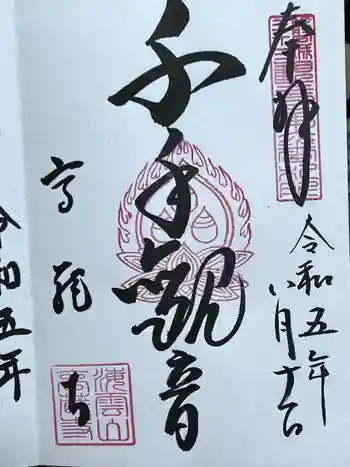 奉拝
令和五年
八月十一日
千手観音
高龍寺
令和五年